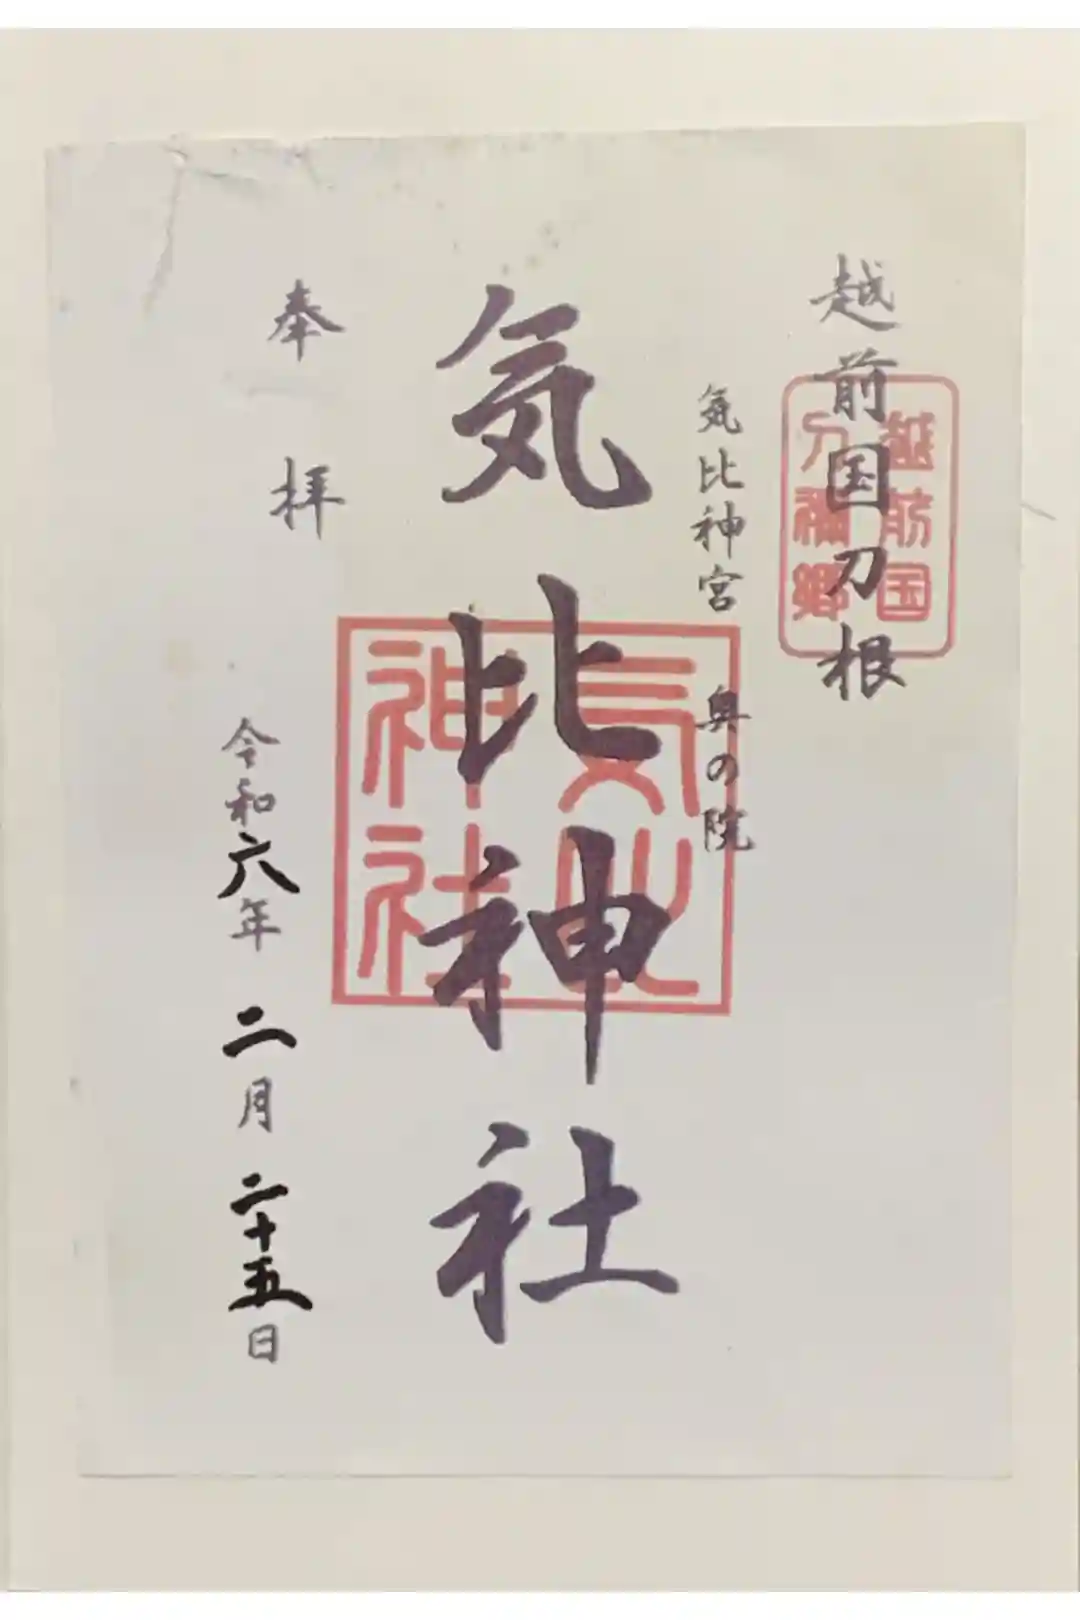 越前国刀根
越前国
刀禰郷
気比神宮 奥の院
気比神社
気比
神社
奉拝
令和六年二月二十五日